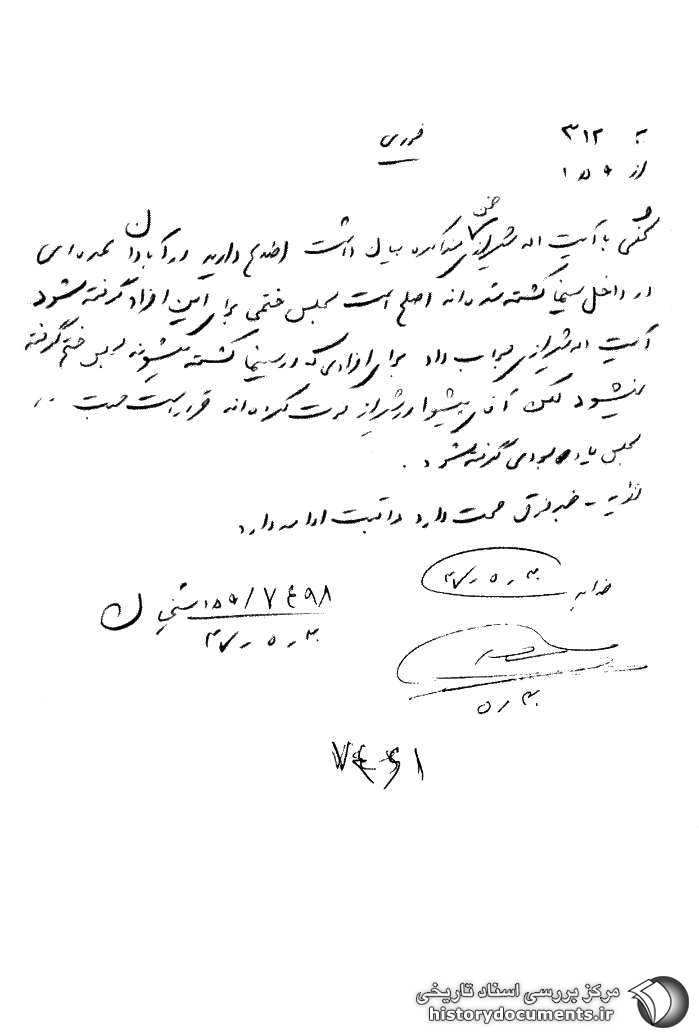 به ۳۱۲ فوری
از ۹ ﻫ ۱
با آیت اله شیرازی ضمن مذاکره بیان داشت اطلاع دارید در آبادان عده‌ای
در داخل سینما کشته شده‌اند اصلح است مجلس ختمی برای این افراد گرفته شود
آیت اله شیرازی جواب داد برای افرادی که در سینما کشته میشوند مجلس ختم گرفته
نمیشود لکن آقای پیشوا در شیراز فوت کرده‌اند قرار است
مجلس یادبودی گرفته شود.
نظریه - خبر فوق صحت دارد مراقبت ادامه دارد.
۳۰ر۵ر۳۷
۷۴۹۸/
۳۰ر۵ر۳۷
۳۰ر۵
مرکز بررسی اسناد تاریخی
historydocuments.ir